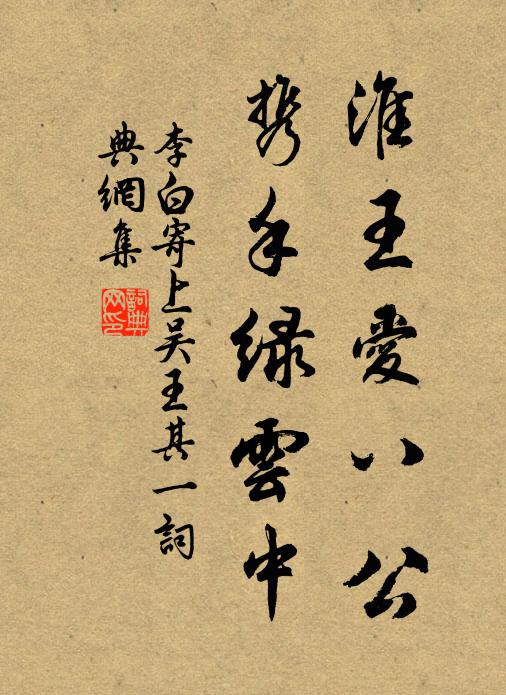 淮王愛八公
携手緑雲中
李白寄上吴王其一詞
典網集
詞典
网印